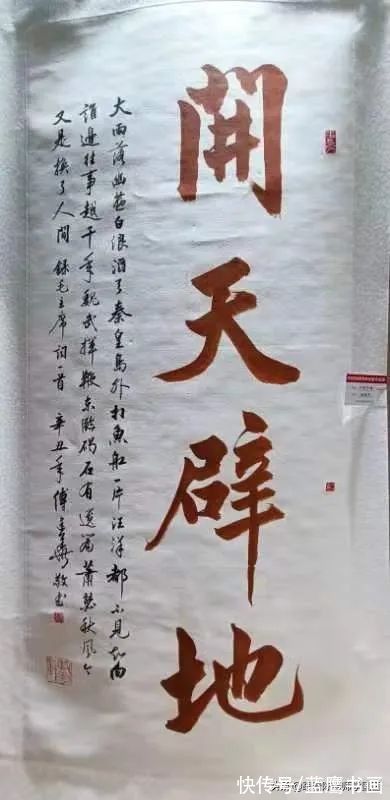 開天辟地
大雨落幽燕白浪滔天秦皇島外打魚船一片汪洋都不見知向
誰邊往事越千年魏武揮鞭東臨碣石有遺篇蕭瑟秋風今
又是換了人間 錄毛主席詞一首 辛丑年傅敬书
快传号/蓝鹰书画